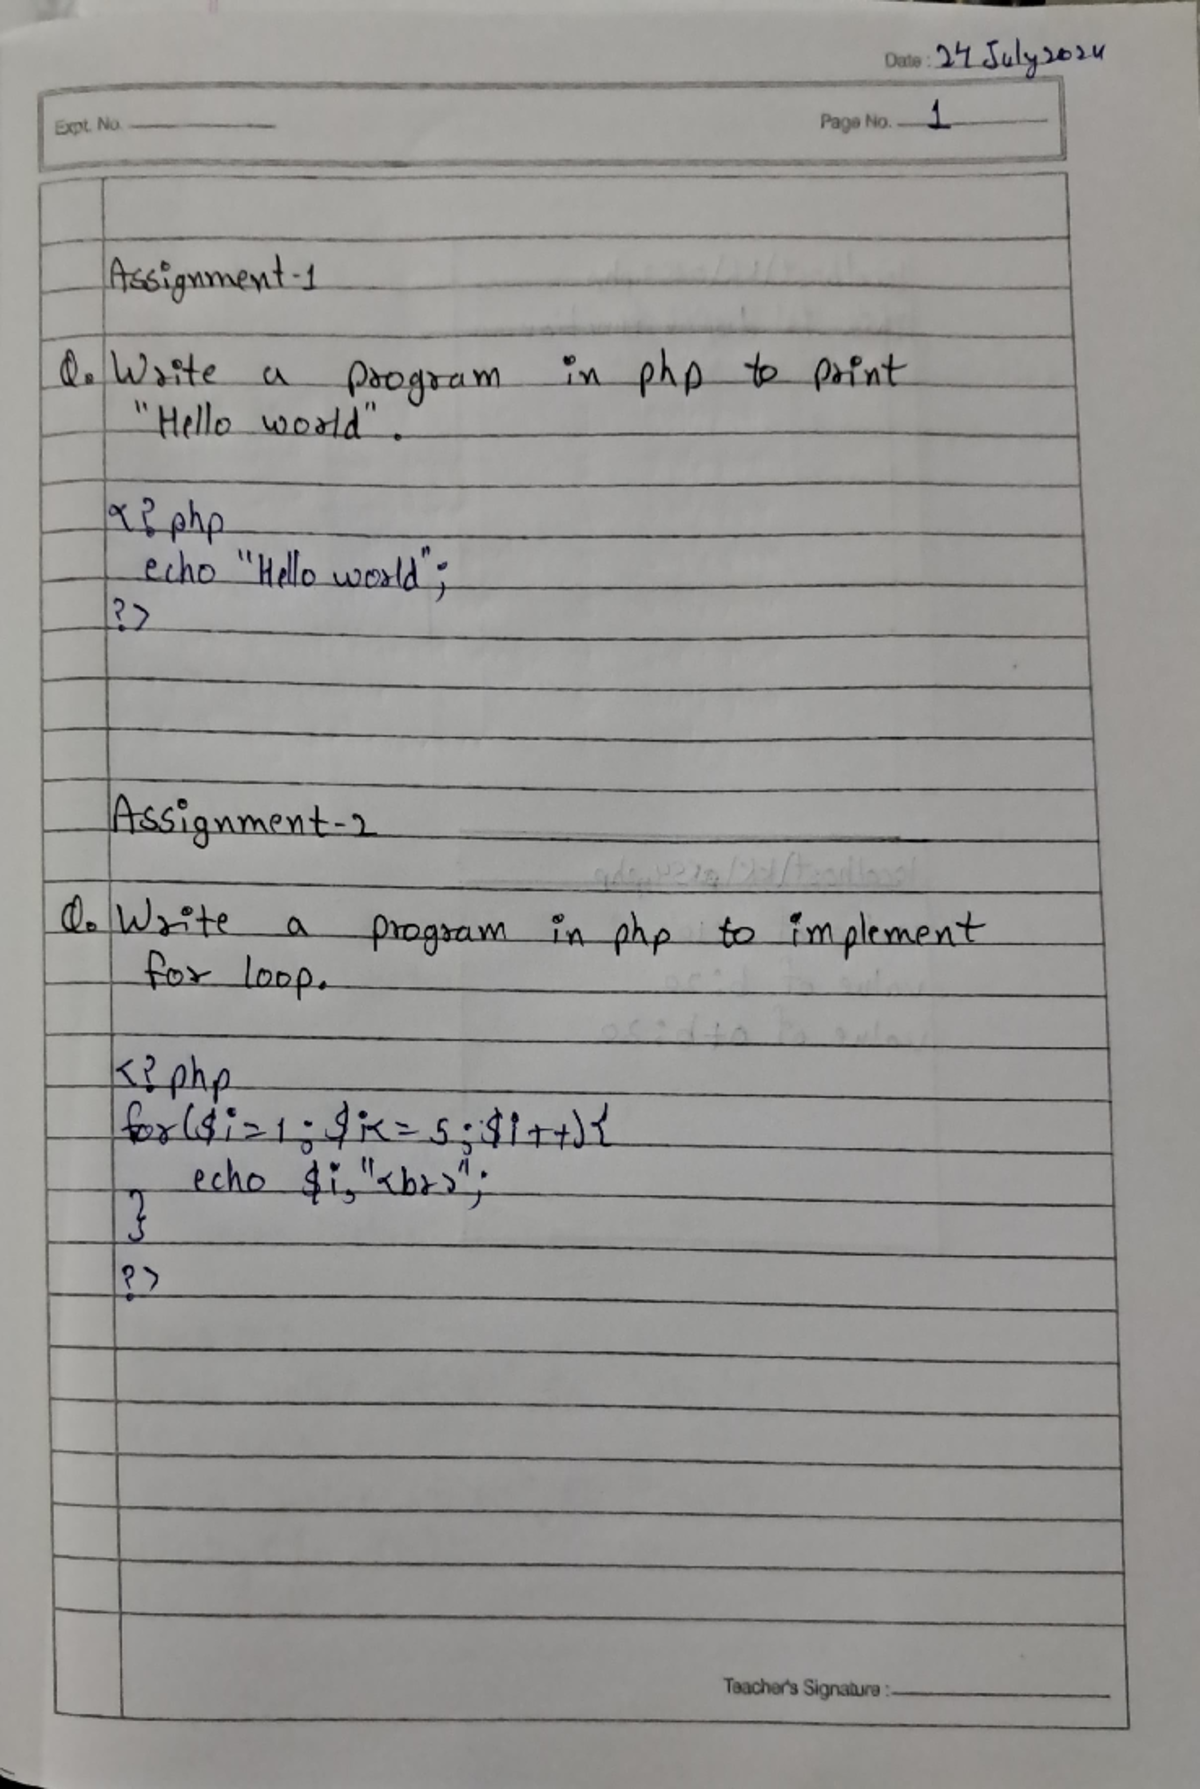 Date : 24 July 2024
Expt. No.
Page No. 1
Assignment-1
Q. Write a program in php to print
"Hello world".
<?php
echo "Hello world";
?>
Assignment-2
Q. Write a program in php to implement
for loop.
<?php
for($i=1; $i<=5; $i++){
echo $i,"<br>";
}
?>
Teacher's Signature :